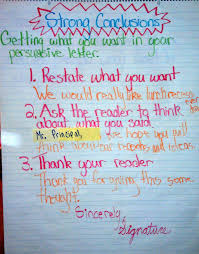 Strong Conclusions
Getting what you want in your
persuasive letter.
1. Restate what you want
We would really like lunch recess
2. Ask the reader to think
about what you said.
Mr. Principal, We hope you will
think about our reasons and
3. Thank your reader
Thank you for giving this some
thought.
Sincerely,
Signature